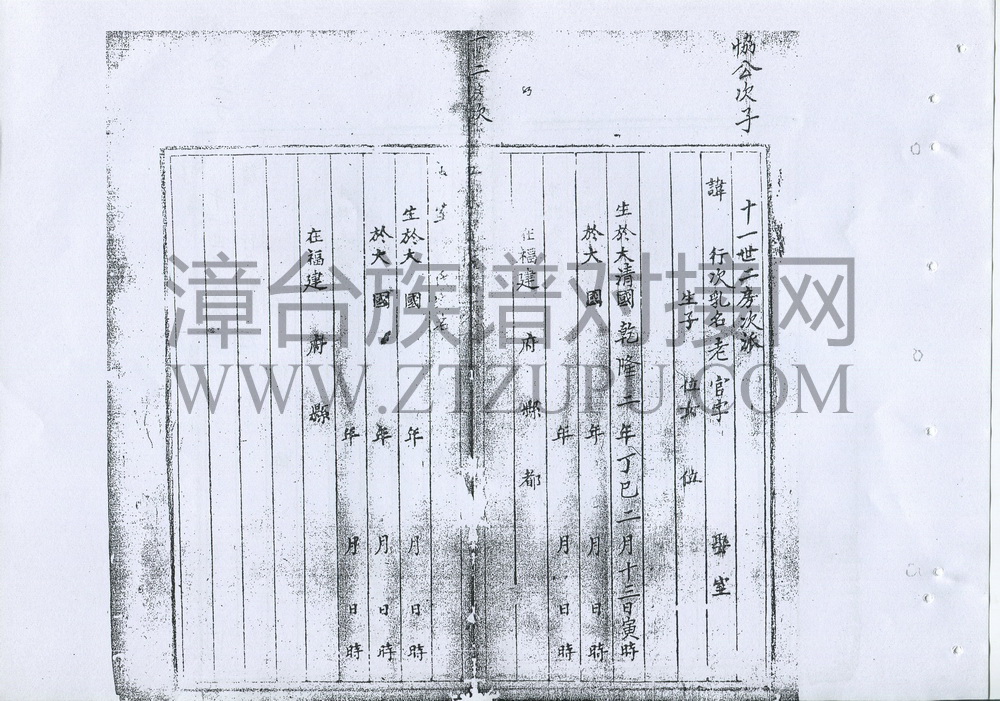 協公次子
十一世二房次派
諱 行次乳名老官字 娶室
生子 位女 位
生於大清國乾隆二年丁巳二月十三日寅時
於大 國 年 月 日 時
年 月 日 時
在福建 府 縣 都
二房次
生於大 國 年 月 日 時
於大 國 年 月 日 時
年 月 日 時
在福建 府 縣
漳台族谱对接网
WWW.ZTZUPU.COM